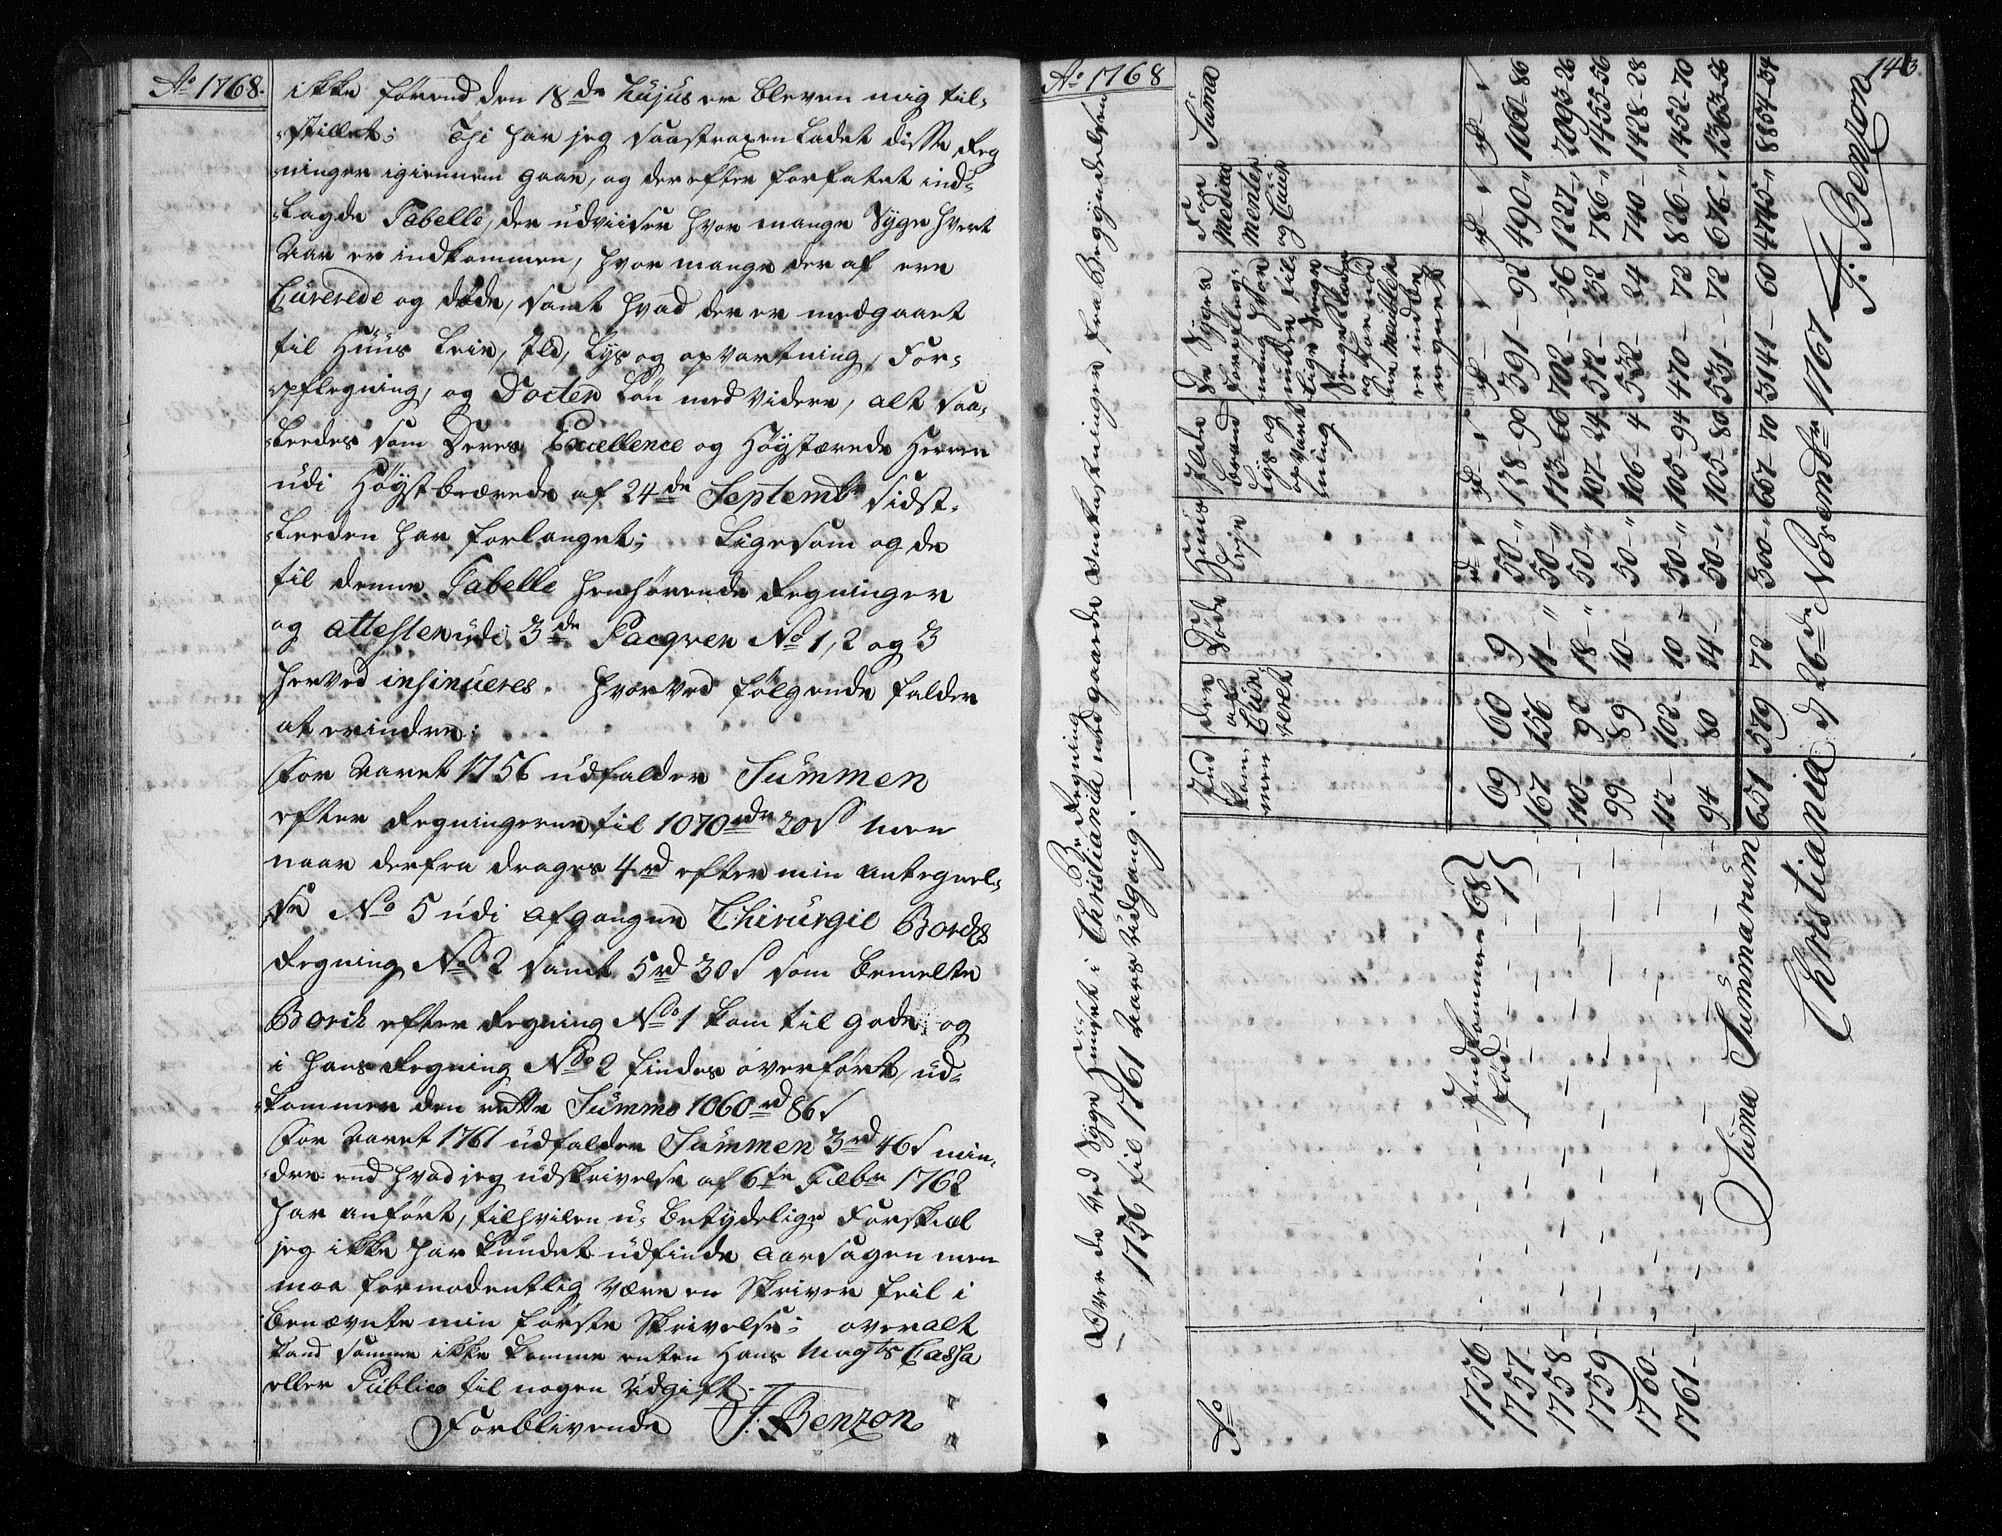 Ao 1768.
ikke førend den 18de hujus er bleven mig til-
stillet; Thi har jeg saastraxen ladet disse Reg
ninger igiennem gaae, og derefter forfatet ind-
lagde Tabelle, der udviiser hvor mange Syge hvert
Aar er indkommen, hvor mange der af ere
Curerede og døde, samt hvad der er medgaaet
til Huus Leie, Ild, Lys og opvartning, For-
pflegning, og Docter Løn med videre, alt saa-
leedes som Deres Excellence og Høystærede Herrer
udi Høystbeærede af 24de Septembr sidst-
leeden har forlanget; Ligesom og de
til denne Tabelle henhørende Regninger
og attester udi 3de Pacqver No 1, 2 og 3
herved insinueres. Hvorved følgende falder
at erindre:
For Aaret 1756 udfalder Summen
efter Regningerne til 1070 rdr 20 s men
naar derfra drages 4 rd efter min Antegnel-
se No 5 udi afgangne Chirurgie Borchs
Regning No 2 samt 5 rd 30 s som bemelte
Borch efter Regning No 1 kom til gode og
i hans Regning No 2 findes overført, ud-
kommer den rette Summa 1060 rd 86 s
For Aaret 1761 udfalder Summen 3 rd 46 s min-
dre end hvad jeg udskrivelse af 6te Febr 1762
har anført, tilhvilen u- betydelige Forskiæl
jeg ikke har kundet udfinde Aarsagen men
maa formodentlig være en Skriver feil i
benævnte min første Skrivelse; overalt
kand samme ikke komme enten Hans Mayts Cassa
eller Publico til nogen Udgift.
Forblivende J: Benzon
Ao 1768
143.
Over de ved Syge Huuset i Christiania medgaaede Omkostninger fra Begyndelsen
Be Regning
1756 til 1761 Aars Udgang.
Ao
Ind kom men
der af Cureret
Døde
Huus Leje
Ilde brand Lys og opvart ning
De Syges forpfleg- ning hvor under til lige Senge Klæder og for
For Medica menter og Cuur
Suma
1756 - Indkommen 68 fød 1 69 60 9 50 - " 128 - 90 391 - 92 490 - " 1060 - 86
1757 - 167 156 11 - " 50 - " 113 - 66 702 - 56 1227 - " 2093 - 26
1758 - 110 - 92 18 - " 50 - " 107 - 24 512 - 32 786 - " 1455 - 56
1759 - 99 - 89 10 - 50 - " 106 - 4 532 - 24 740 - 1428 - 28
1760 - 112 - 102 - 10 - 50 - " 105 - 94 470 - 72 826 - " 1452 - 70
1761 - 94 80 14 - 50 - " 105 - 80 531 - 72 676 - " 1363 - 56
Suma Summarum 651 579 72 300 - " 667 - 70 3141 - 60 4745 - " 8854 - 34
Christiania d 26de Novembr 1767
J: Benzon